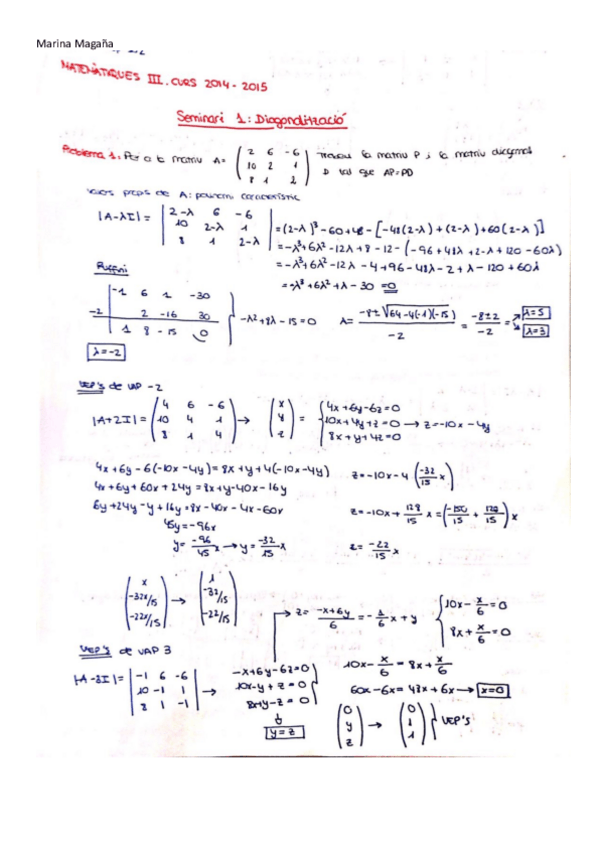 Marina Magaña
MATEMÀTIQUES III. CURS 2014-2015
Seminari 1: Diagonalització
Problema 1: Per a la matriu A= (2 6 -6; 10 2 1; 8 1 2) trobau la matriu P i la matriu diagonal
D tal que AP=PD
Valors propis de A: polinomi característic
|A-λI| = |2-λ 6 -6; 10 2-λ 1; 8 1 2-λ| = (2-λ)³-60+48-[-48(2-λ)+(2-λ)+60(2-λ)]
= -λ³+6λ²-12λ+8-12-(-96+48λ+2-λ+120-60λ)
= -λ³+6λ²-12λ-4+96-48λ-2+λ-120+60λ
= -λ³+6λ²+λ-30=0
Ruffini
-1 6 1 -30
-2 2 -16 30
1 8 -15 0
-λ²+8λ-15=0
λ= (-8±√(64-4(-1)(-15)))/-2 = (-8±2)/-2 = λ=5 λ=3
λ=-2
VEP's de VAP -2
|A+2I| = (4 6 -6; 10 4 1; 8 1 4) → (x; y; z) = {4x+6y-6z=0
10x+4y+z=0 → z=-10x-4y
8x+y+4z=0
4x+6y-6(-10x-4y)=8x+y+4(-10x-4y)
4x+6y+60x+24y=8x+y-40x-16y
6y+24y-y+16y=8x-40x-4x-60x
45y=-96x
y= -96/45 x → y= -32/15 x
z=-10x-4(-32/15 x)
z=-10x+128/15 x=(-150/15+128/15)x
z= -22/15 x
(x; -32x/15; -22x/15) → (1; -32/15; -22/15)
VEP's de VAP 3
|A-3I|= |-1 6 -6; 10 -1 1; 8 1 -1| → -x+6y-6z=0
10x-y+z=0
8x+y-z=0
y=z
z= (-x+6y)/6 = -1/6 x+y
{10x-x/6=0
8x+x/6=0
10x-x/6=8x+x/6
60x-6x=48x+6x → x=0
(0; y; z) → (0; 1; 1) } VEP's